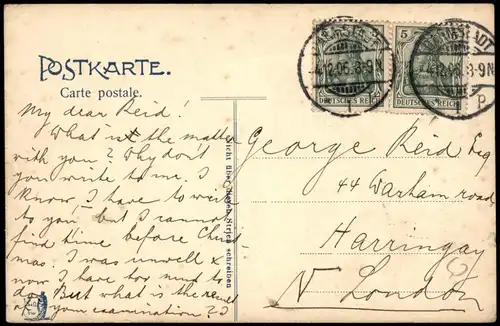 POSTKARTE.
Carte postale.
My dear Reid!
What is the matter
with you? Why don't
you write to me. I
know, I have to write
to you but I cannot
find time before Christ-
mas. I was unwell &
now I have too much to
do. But what is the result
of your examination?
Nicht über diesen Strich schreiben
DARMSTADT
4.12.05. 8-9N
DEUTSCHES REICH
5
DARMSTADT
4.12.05. 8-9N
DEUTSCHES REICH
George Reid Esq
44 Warham road
Harringay
N London